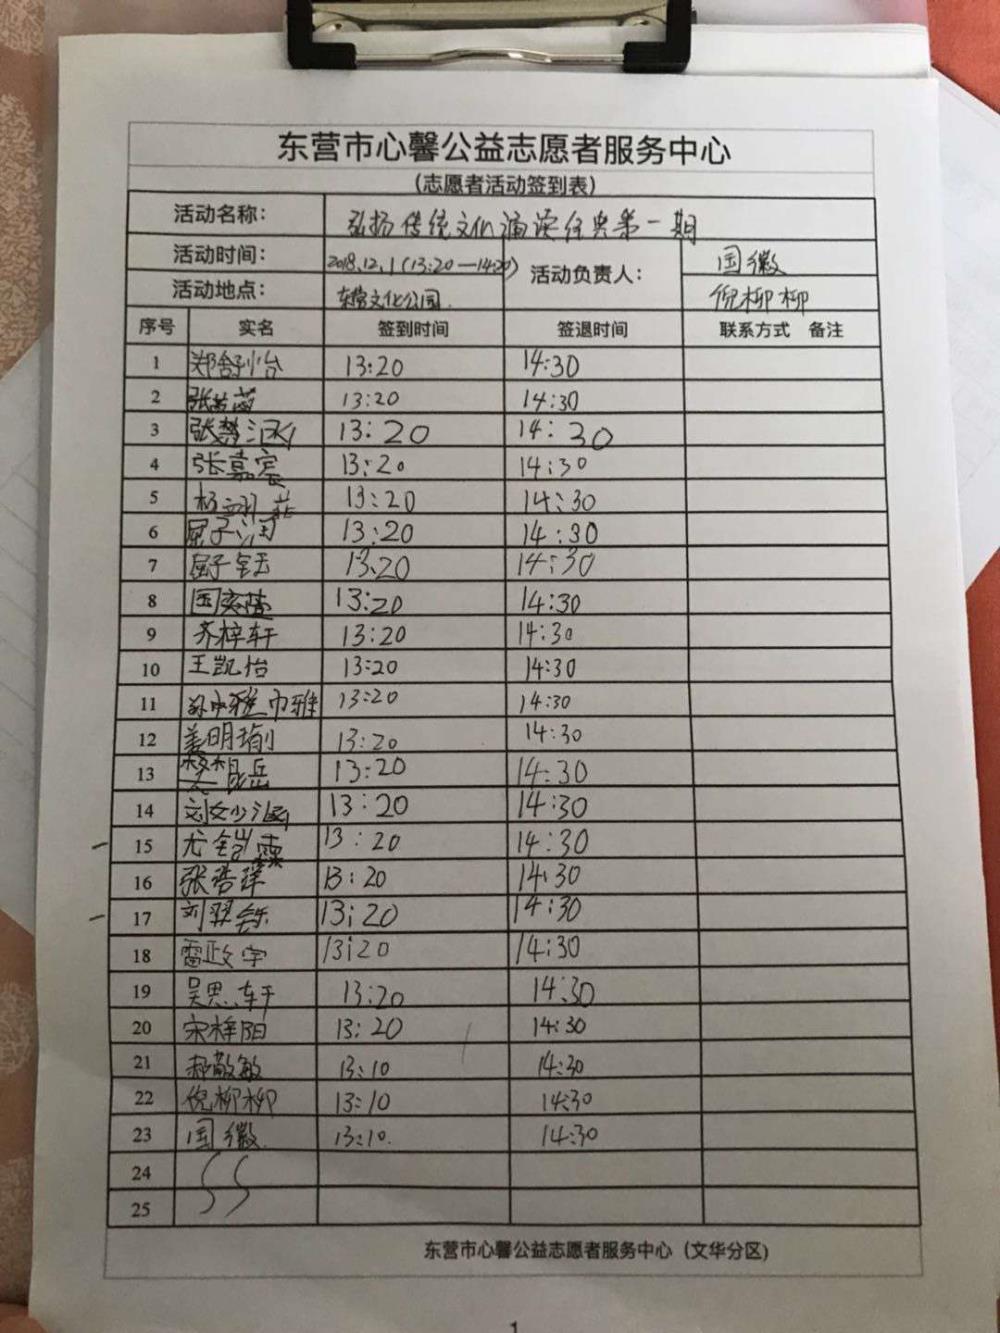 东营市心馨公益志愿者服务中心
(志愿者活动签到表)
活动名称: 弘扬传统文化诵读经典第一期
活动时间: 2018.12.1(13:20—14:20) 活动负责人: 国徽
活动地点: 东营文化公园. 倪柳柳
序号 实名 签到时间 签退时间 联系方式 备注
1 郑舒怡 13:20 14:30
2 13:20 14:30
3 张梦涵 13:20 14:30
4 张嘉宸 13:20 14:30
5 13:20 14:30
6 屈子涧 13:20 14:30
7 屈子钰 13:20 14:30
8 国奕蕾 13:20 14:30
9 齐梓轩 13:20 14:30
10 王凯怡 13:20 14:30
11 13:20 14:30
12 姜明瑜 13:20 14:30
13 13:20 14:30
14 13:20 14:30
15 13:20 14:30
16 张浩洋 13:20 14:30
17 刘羿铄 13:20 14:30
18 雷政宇 13:20 14:30
19 吴思轩 13:20 14:30
20 宋梓阳 13:20 14:30
21 郝敬敏 13:10 14:30
22 倪柳柳 13:10 14:30
23 国徽. 13:10. 14:30
24
25
东营市心馨公益志愿者服务中心 (文华分区)
1